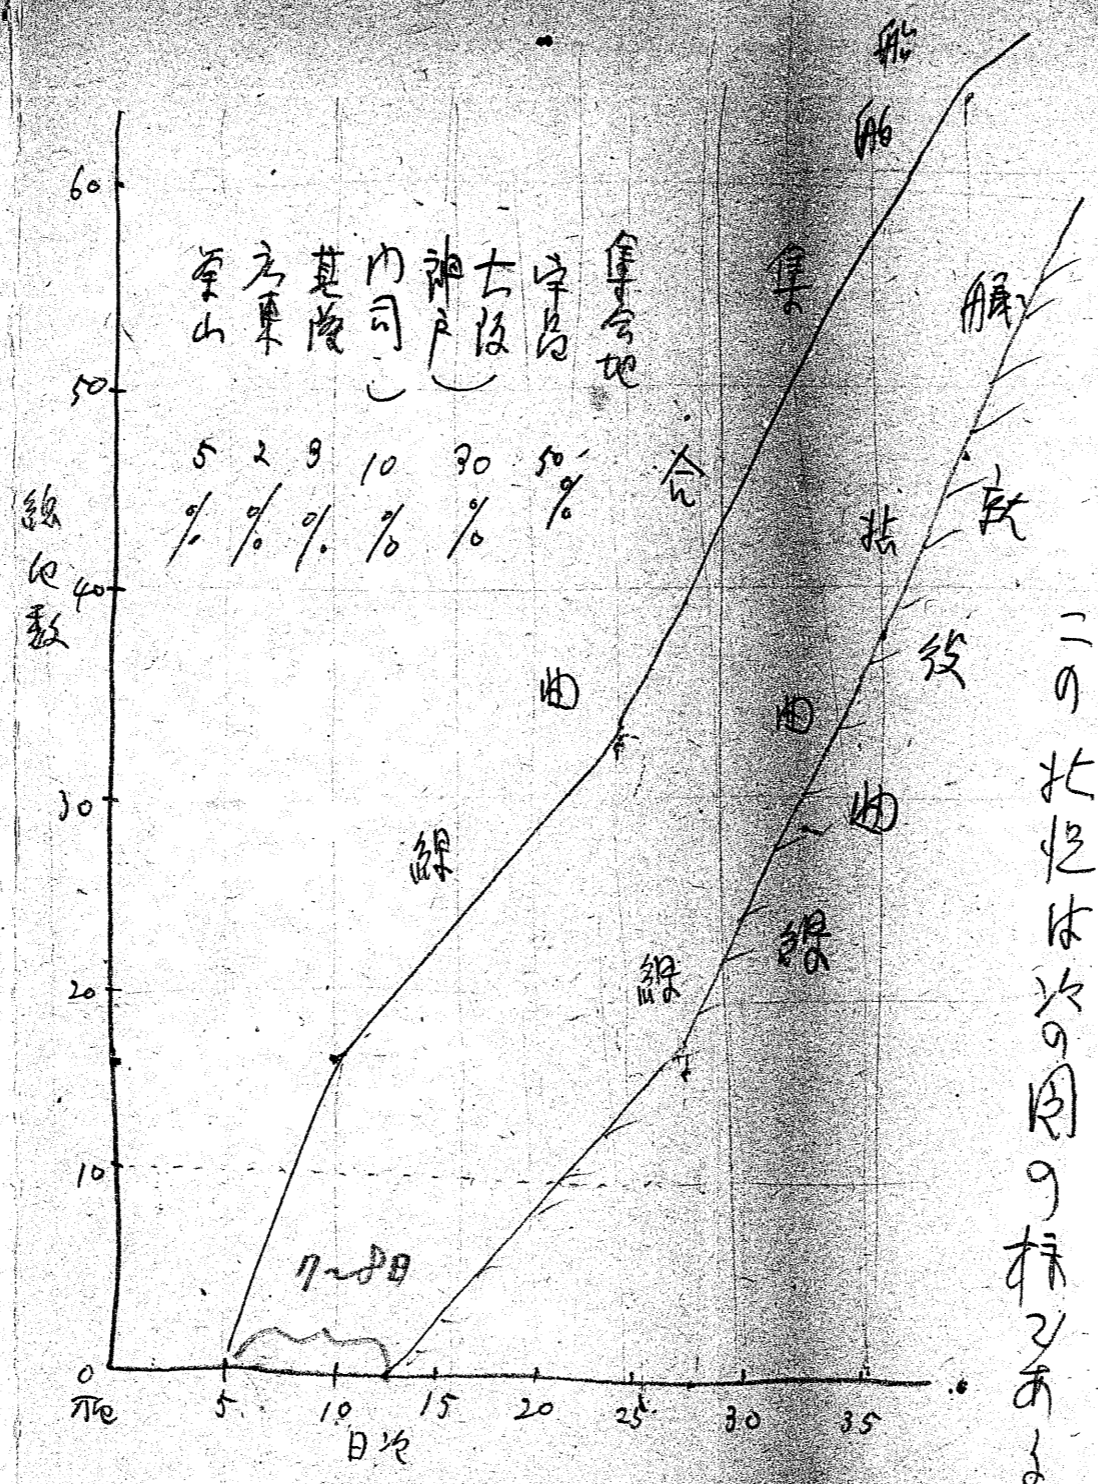 この状況は次の図の様である
船舶集合曲線
曲線
曲線
集合地
宇品 50%
大阪 神戸 30%
門司 10%
基隆 3%
広東 2%
釜山 5%
総屯数
60
50
40
30
20
10
0
7~8日
5 10 15 20 25 30 35
日次